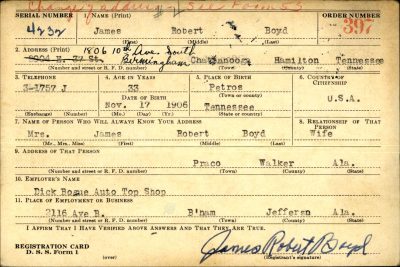 Change address #2 See Form 53
SERIAL NUMBER 1. NAME (Print) ORDER NUMBER
4232 James Robert Boyd 397
(First) (Middle) (Last)
1806 10th Ave. South
2. ADDRESS (Print) Birmingham
E. 37 St. Chattanooga Hamilton Tennessee
(Number and street or R. F. D. number) (Town) (County) (State)
3. TELEPHONE 4. AGE IN YEARS 5. PLACE OF BIRTH 6. COUNTRY OF CITIZENSHIP
3-1757 J 33 Petros
DATE OF BIRTH (Town or county)
Nov. 17 1906 Tennessee U.S.A.
(Exchange) (Number) (Mo.) (Day) (Yr.) (State or country)
7. NAME OF PERSON WHO WILL ALWAYS KNOW YOUR ADDRESS 8. RELATIONSHIP OF THAT PERSON
Mrs. James Robert Boyd Wife
(Mr., Mrs., Miss) (First) (Middle) (Last)
9. ADDRESS OF THAT PERSON
Praco Walker Ala.
(Number and street or R. F. D. number) (Town) (County) (State)
10. EMPLOYER'S NAME
Dick Bogue Auto Top Shop
11. PLACE OF EMPLOYMENT OR BUSINESS
2116 Ave B. B'ham Jeffersn Ala.
(Number and street or R. F. D. number) (Town) (County) (State)
I AFFIRM THAT I HAVE VERIFIED ABOVE ANSWERS AND THAT THEY ARE TRUE.
REGISTRATION CARD
D. S. S. Form 1 (over) James Robert Boyd
(Registrant's signature)